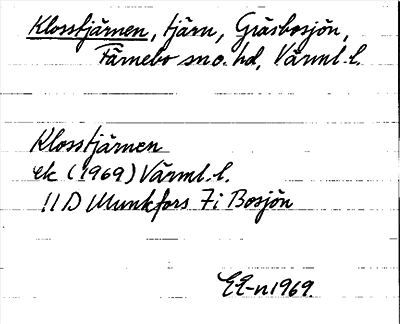 Klosstjärnen, tjärn, Gräsbosjön,
Färnebo sn o. hd, Värml. l.
Klosstjärnen
ek (1969) Värml. l.
11D Munkfors 7i Bosjön
EE-n 1969.